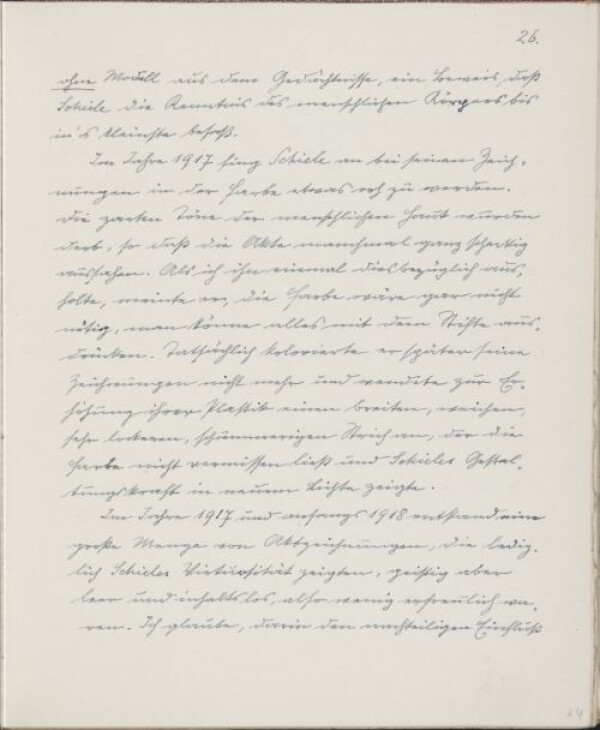 26.
ohne Modell aus dem Gedächtnisse, ein Beweis, daß
Schiele die Kenntnis des menschlichen Körpers bis
in's kleinste besaß.
Im Jahre 1917 fing Schiele an bei seinen Zeich-
nungen in der Farbe etwas roh zu werden.
Die zarten Töne der menschlichen Haut wurden
derb, so daß die Akte manchmal ganz scheckig
aussahen. Als ich ihm einmal diesbezüglich aus-
holte, meinte er, die Farbe wäre gar nicht
nötig, man könne alles mit dem Stifte aus-
drücken. Tatsächlich kolorierte er später seine
Zeichnungen nicht mehr und wendete zur Er-
höhung ihrer Plastik einen breiten, weichen,
sehr lockeren, schummerigen Strich an, der die
Farbe nicht vermissen ließ und Schieles Gestal-
tungskraft in neuem Lichte zeigte.
Im Jahre 1917 und anfangs 1918 entstand eine
große Menge von Aktzeichnungen, die ledig-
lich Schieles Virtuosität zeigten, geistig aber
leer und inhaltslos, also wenig erfreulich wa-
ren. Ich glaube, darin den nachteiligen Einfluß
24